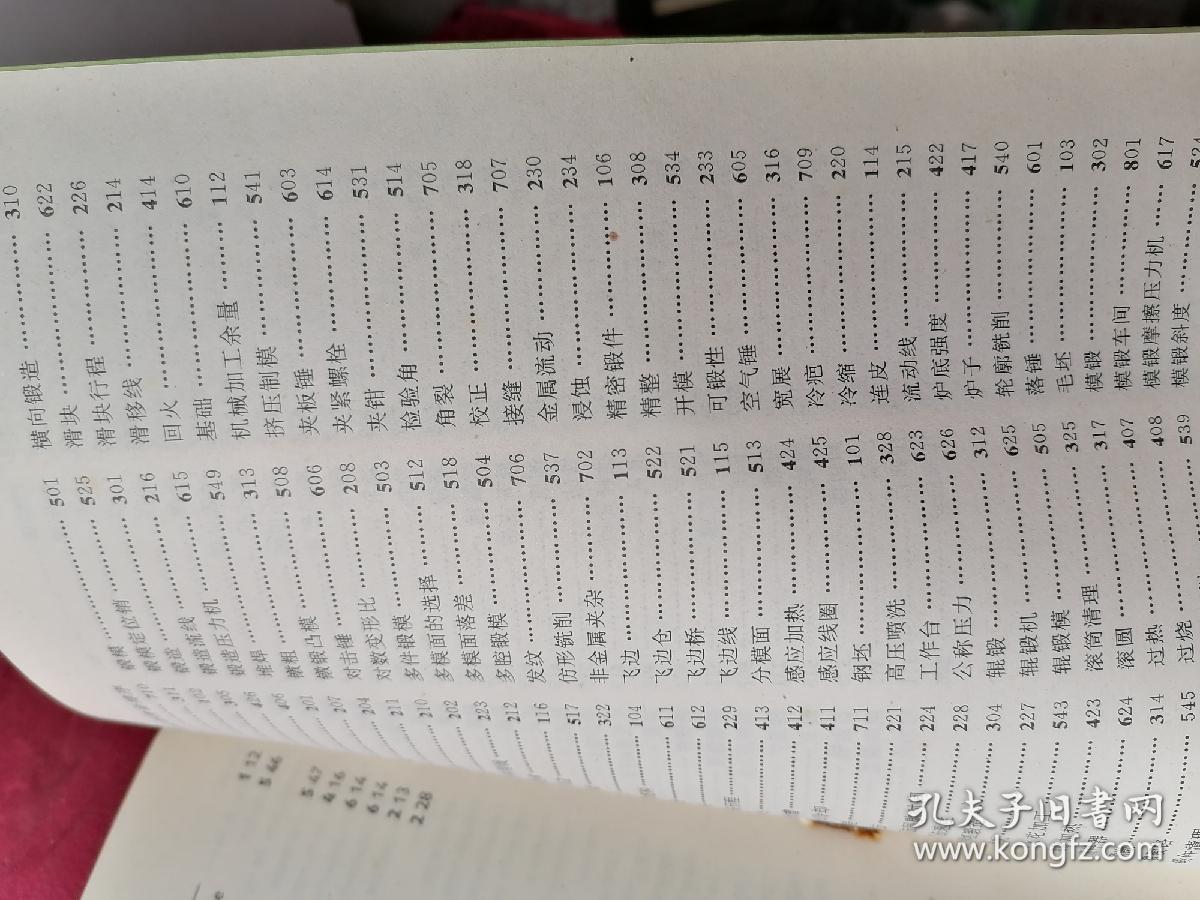 201
207
204
211
210
202
223
212
116
517
322
104
611
612
229
413
412
411
711
221
224
228
304
227
543
423
624
314
545
锻模 …… 501
锻模定位销 …… 525
锻造 …… 301
锻造流线 …… 216
锻造压力机 …… 615
堆焊 …… 549
镦粗 …… 313
镦锻凸模 …… 508
对击锤 …… 606
对数变形比 …… 208
多件锻模 …… 503
多模面的选择 …… 512
多模面落差 …… 518
多腔锻模 …… 504
发纹 …… 706
仿形铣削 …… 537
非金属夹杂 …… 702
飞边 …… 113
飞边仓 …… 522
飞边桥 …… 521
飞边线 …… 115
分模面 …… 513
感应加热 …… 424
感应线圈 …… 425
钢坯 …… 101
高压喷洗 …… 328
工作台 …… 623
公称压力 …… 626
辊锻 …… 312
辊锻机 …… 625
辊锻模 …… 505
滚筒清理 …… 325
滚圆 …… 317
过热 …… 407
过烧 …… 408
539
横向锻造 …… 310
滑块 …… 622
滑块行程 …… 226
滑移线 …… 214
回火 …… 414
基础 …… 610
机械加工余量 …… 112
挤压制模 …… 541
夹板锤 …… 603
夹紧螺栓 …… 614
夹钳 …… 531
检验角 …… 514
角裂 …… 705
校正 …… 318
接缝 …… 707
金属流动 …… 230
浸蚀 …… 234
精密锻件 …… 106
精整 …… 308
开模 …… 534
可锻性 …… 233
空气锤 …… 605
宽展 …… 316
冷疤 …… 709
冷缩 …… 220
连皮 …… 114
流动线 …… 215
炉底强度 …… 422
炉子 …… 417
轮廓铣削 …… 540
落锤 …… 601
毛坯 …… 103
模锻 …… 302
模锻车间 …… 801
模锻摩擦压力机 …… 617
模锻斜度 ……
1.12
5.46
5.47
4.16
6.14
6.14
2.13
2.28
孔夫子旧书网
www.kongfz.com